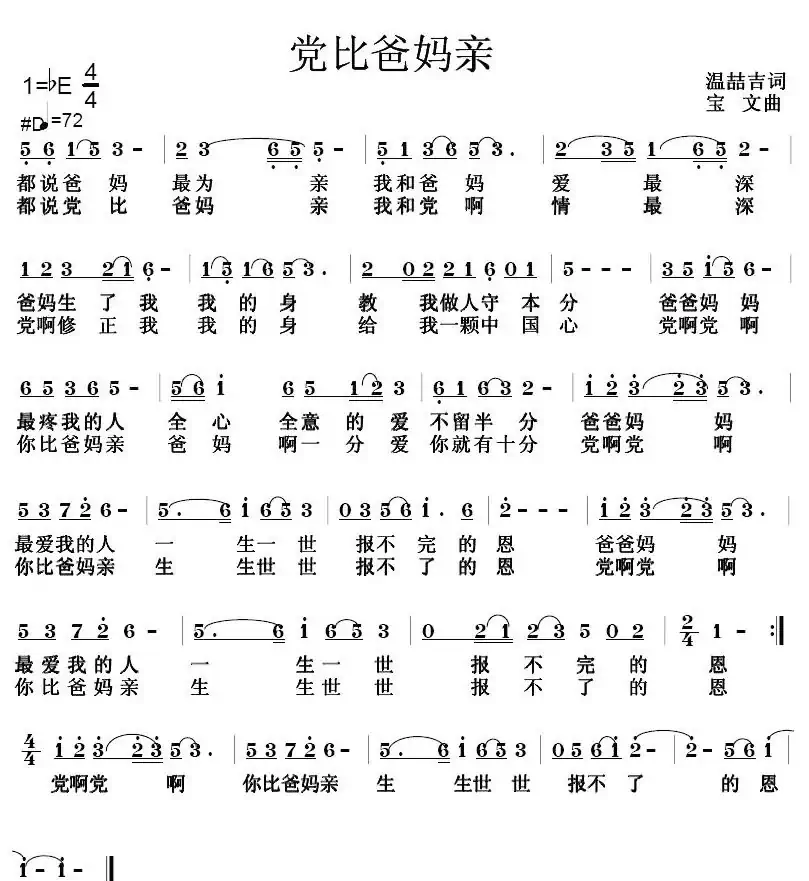 党比爸妈亲
1=♭E 4/4
温喆吉词
宝 文曲
#D♩=72
5 6 1 5 3 - | 2 3 6 5 5 - | 5 1 3 6 5 3 . | 2 3 5 1 6 5 2 - |
都说爸 妈 最为 亲 我和爸 妈 爱 最 深
都说党 比 爸妈 亲 我和党 啊 情 最 深
1 2 3 2 1 6 - | 1 5 1 6 5 3 . | 2 0 2 2 1 6 0 1 | 5 - - - | 3 5 i 5 6 - |
爸妈生 了 我 我 的 身 教 我做人守 本 分 爸爸妈 妈
党啊修 正 我 我 的 身 给 我一颗中 国 心 党啊党 啊
6 5 3 6 5 - | 5 6 i 6 5 1 2 3 | 6 1 6 3 2 - | i 2 3 2 3 5 3 . |
最疼我的人 全 心 全意 的 爱 不留半 分 爸爸妈 妈
你比爸妈亲 爸 妈 啊一 分 爱 你就有十分 党啊党 啊
5 3 7 2 6 - | 5 . 6 i 6 5 3 | 0 3 5 6 i . 6 | 2 - - - | i 2 3 2 3 5 3 . |
最爱我的人 一 生一 世 报不 完 的 恩 爸爸妈 妈
你比爸妈亲 生 生世 世 报不 了 的 恩 党啊党 啊
5 3 7 2 6 - | 5 . 6 i 6 5 3 | 0 2 1 2 3 5 0 2 | 2/4 1 - :|
最爱我的人 一 生一 世 报 不 完 的 恩
你比爸妈亲 生 生世 世 报 不 了 的 恩
4/4 i 2 3 2 3 5 3 . | 5 3 7 2 6 - | 5 . 6 i 6 5 3 | 0 5 6 i 2 - | 2 - 5 6 i |
党啊党 啊 你比爸妈亲 生 生世 世 报不 了 的 恩
i - i - |